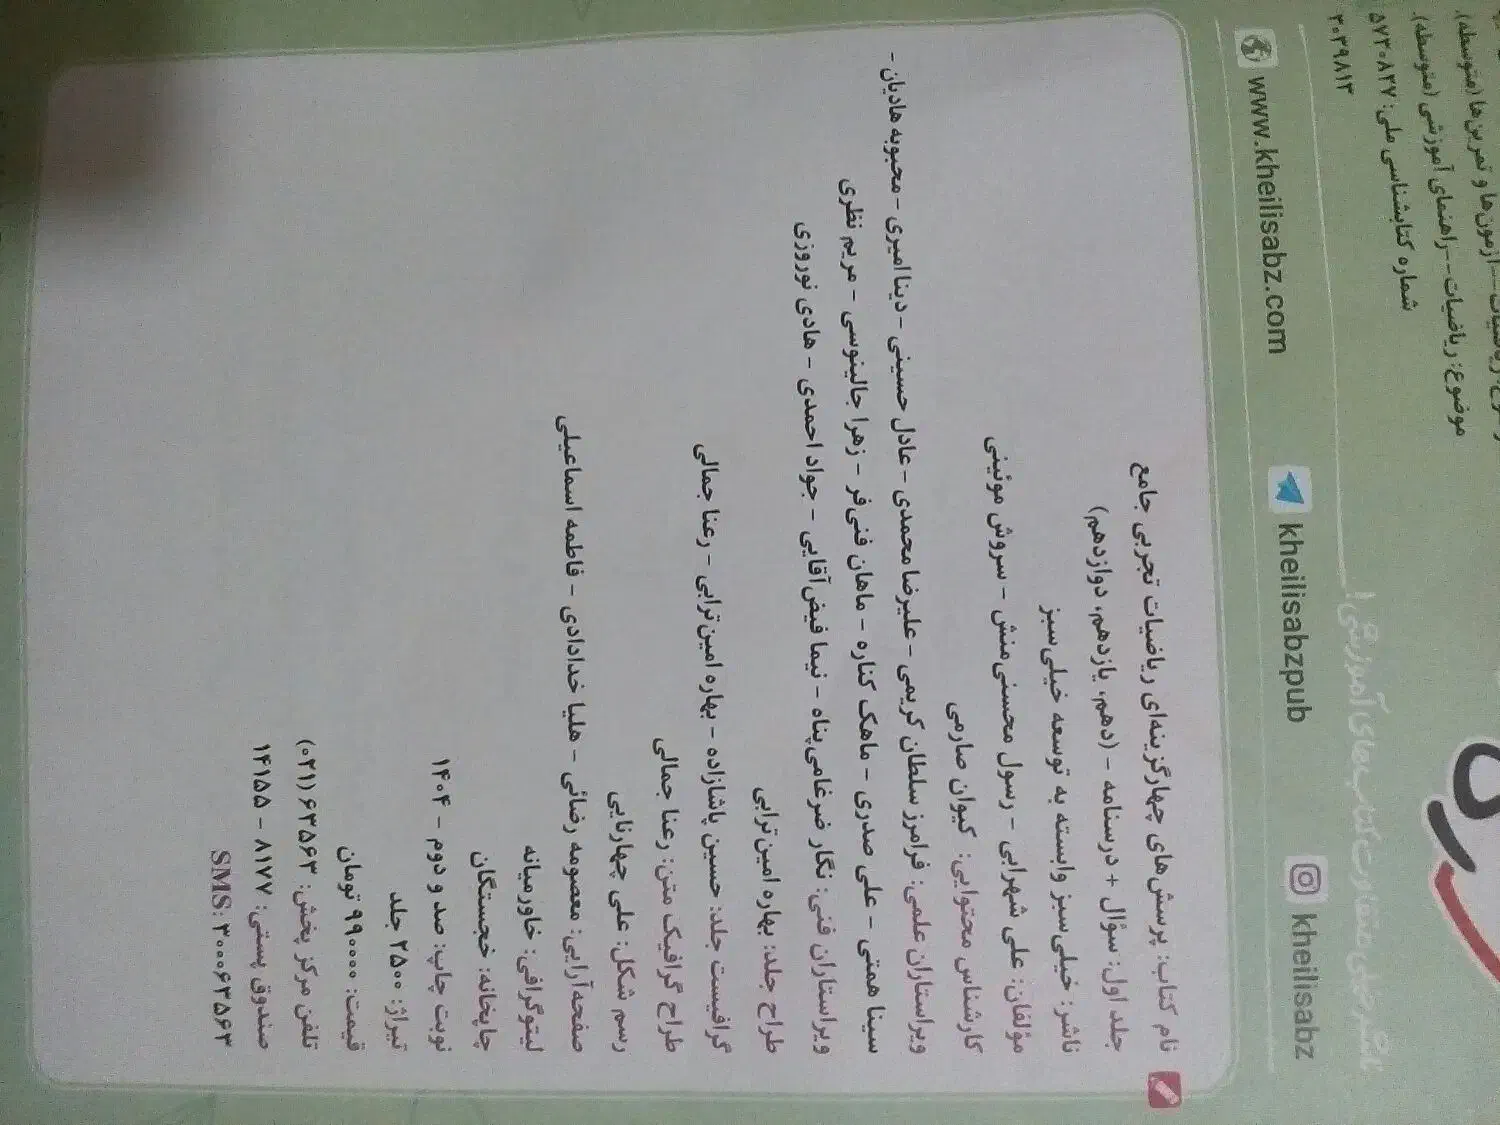 آزمون‌ها و تمرین‌ها (متوسطه).
موضوع: ریاضیات--راهنمای آموزشی (متوسطه).
شماره کتابشناسی ملی: ۵۷۳۰۸۲۷
۳۰۳۹۸۱۳
ناشر خیلی متفاوت کتاب‌های آموزشی!
www.kheilisabz.com
kheilisabzpub
kheilisabz
نام کتاب: پرسش‌های چهارگزینه‌ای ریاضیات تجربی جامع
جلد اول: سؤال + درسنامه - (دهم، یازدهم، دوازدهم)
ناشر: خیلی سبز وابسته به توسعه خیلی سبز
مؤلفان: علی شهرابی - رسول محسنی‌منش - سروش موئینی
کارشناس محتوایی: کیوان صارمی
ویراستاران علمی: فرامرز سلطان کریمی - علیرضا محمدی - عادل حسینی - دینا امیری - محبوبه هادیان -
سینا همتی - علی صدری - ماهک کناره - ماهان فنی‌فر - زهرا جالینوسی - مریم نظری
ویراستاران فنی: نگار ضرغامی‌پناه - نیما فیض‌آقایی - جواد احمدی - هادی نوروزی
طراح جلد: بهاره امین‌ترابی
گرافیست جلد: حسین پاشازاده - بهاره امین‌ترابی - رعنا جمالی
طراح گرافیک متن: رعنا جمالی
رسم شکل: علی چهارنایی
صفحه‌آرایی: معصومه رضائی - هلیا خدادادی - فاطمه اسماعیلی
لیتوگرافی: خاورمیانه
چاپخانه: خجستگان
نوبت چاپ: صد و دوم - ۱۴۰۴
تیراژ: ۲۵۰۰ جلد
قیمت: ۹۹۰۰۰۰ تومان
تلفن مرکز پخش: ۶۳۵۶۳ (۰۲۱)
صندوق پستی: ۸۱۷۷ - ۱۴۱۵۵
SMS: ۳۰۰۰۶۳۵۶۳